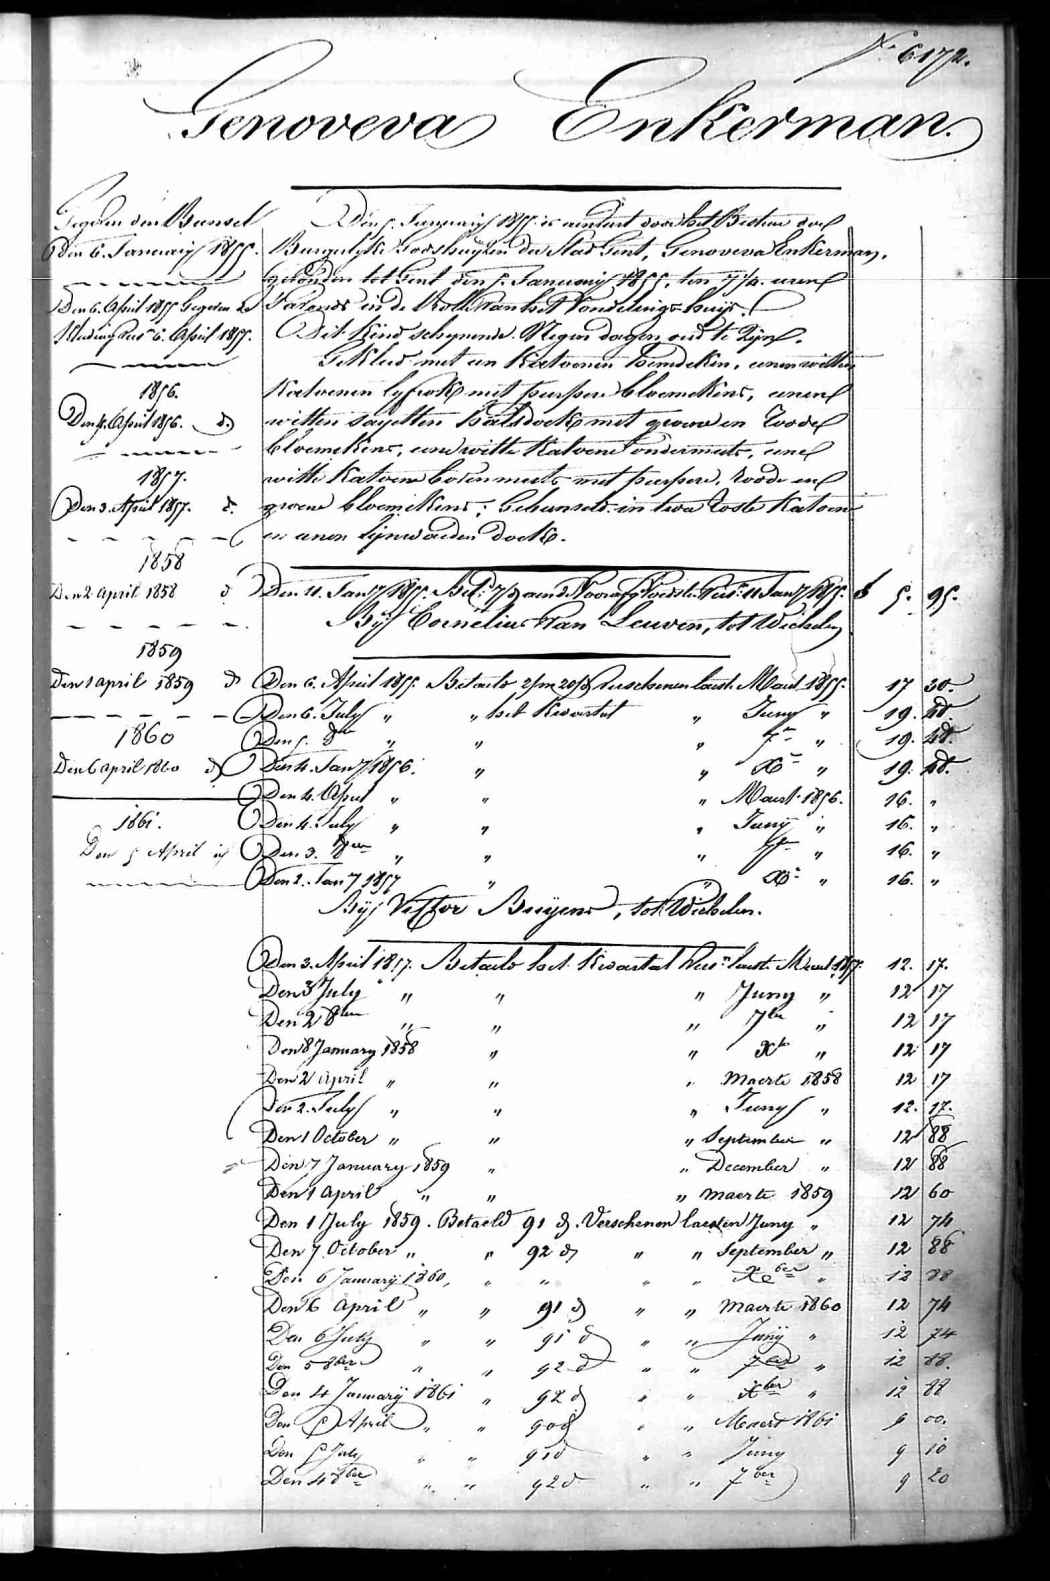 N.º 6172.
Genoveva Enkerman.
Gegeven den Bunsel
den 6. January 1855.
Den 6. April 1855 Gegeven de
Kleeding 6. April 1855.
1856.
Den 4. April 1856. d.
1857.
Den 3. April 1857. d.
1858
Den 2 April 1858 d
1859
Den 1 april 1859 d
1860
Den 6 april 1860 d
1861.
Den 5 April id
Den 5. January 1855 is aenveert door het Bestuer der
Burgelyke Godshuyzen der Stad Gent, Genoveva Enkerman,
gevonden tot Gent den 5. January 1855, ten 7 1/4 uren
s'avonds in de Rolle van het Vondelingshuys.
Dit kind schynende Negen dagen oud te Zyn.
Gekleed met een Katoenen hemdeken, eenen witten
Katoenen lyfrok met purpere bloemekens, eenen
witten sayetten halsdoek met groene en Roode
bloemekens, eene witte Katoene ondermuts, eene
witte Katoene bovenmuts met purpere, roode en
groene bloemekens; Gebunseld in twee Roste Katoene
en eenen lynwaeden doek.
Den 11. Jany 1855. 11 Jany 1855. f 5. 95.
By Cornelius Van Leuven, tot Wichelen
Den 6. April 1855. Betaeld 2/m 20/d Verschenen laest. Maert 1855. 17 30.
Den 6. July " " het Kwartael " Juny " 19. 48.
Den 5. 8er " " " 7er " 19. 48.
Den 4. Jany 1856. " " Xer " 19. 48.
Den 4. April " " " Maert. 1856. 16. "
Den 4. July " " " Juny " 16. "
Den 3. 8ber " " " 7er " 16. "
Den 2. Jany 1857 " " Xer " 16. "
By Victor Buyens, tot Wichelen.
Den 3. April 1857. Betaeld het Kwartael Vers.n laest. Maert 1857. 12. 17.
Den 3 July " " " Juny " 12 17
Den 2 8ber " " " 7ber " 12 17
Den 8 January 1858 " " Xber " 12 17
Den 2 April " " " Maerte 1858 12 17
Den 2. July " " " Juny " 12. 17.
Den 1 October " " " September " 12 88
Den 7 January 1859 " " December " 12 88
Den 1 April " " " maerte 1859 12 60
Den 1 July 1859. Betaeld 91 d. Verschenen laesten Juny " 12 74
Den 7 October " " 92 d " " September " 12 88
Den 6 January 1860, " " " " Xber " 12 88
Den 6 April " " 91 d " " Maerte 1860 12 74
Den 6 July " " 91 d " " Juny " 12 74
Den 5 8ber " " 92 d " " 7ber " 12 88.
Den 4 January 1861 " 92 d " " Xber " 12 88
Den 5 April " " 90 d " " Maert 1861 9 00.
Den 5 July " " 91 d " " Juny 9 10
Den 4 8ber " " 92 d " " 7ber 9 20